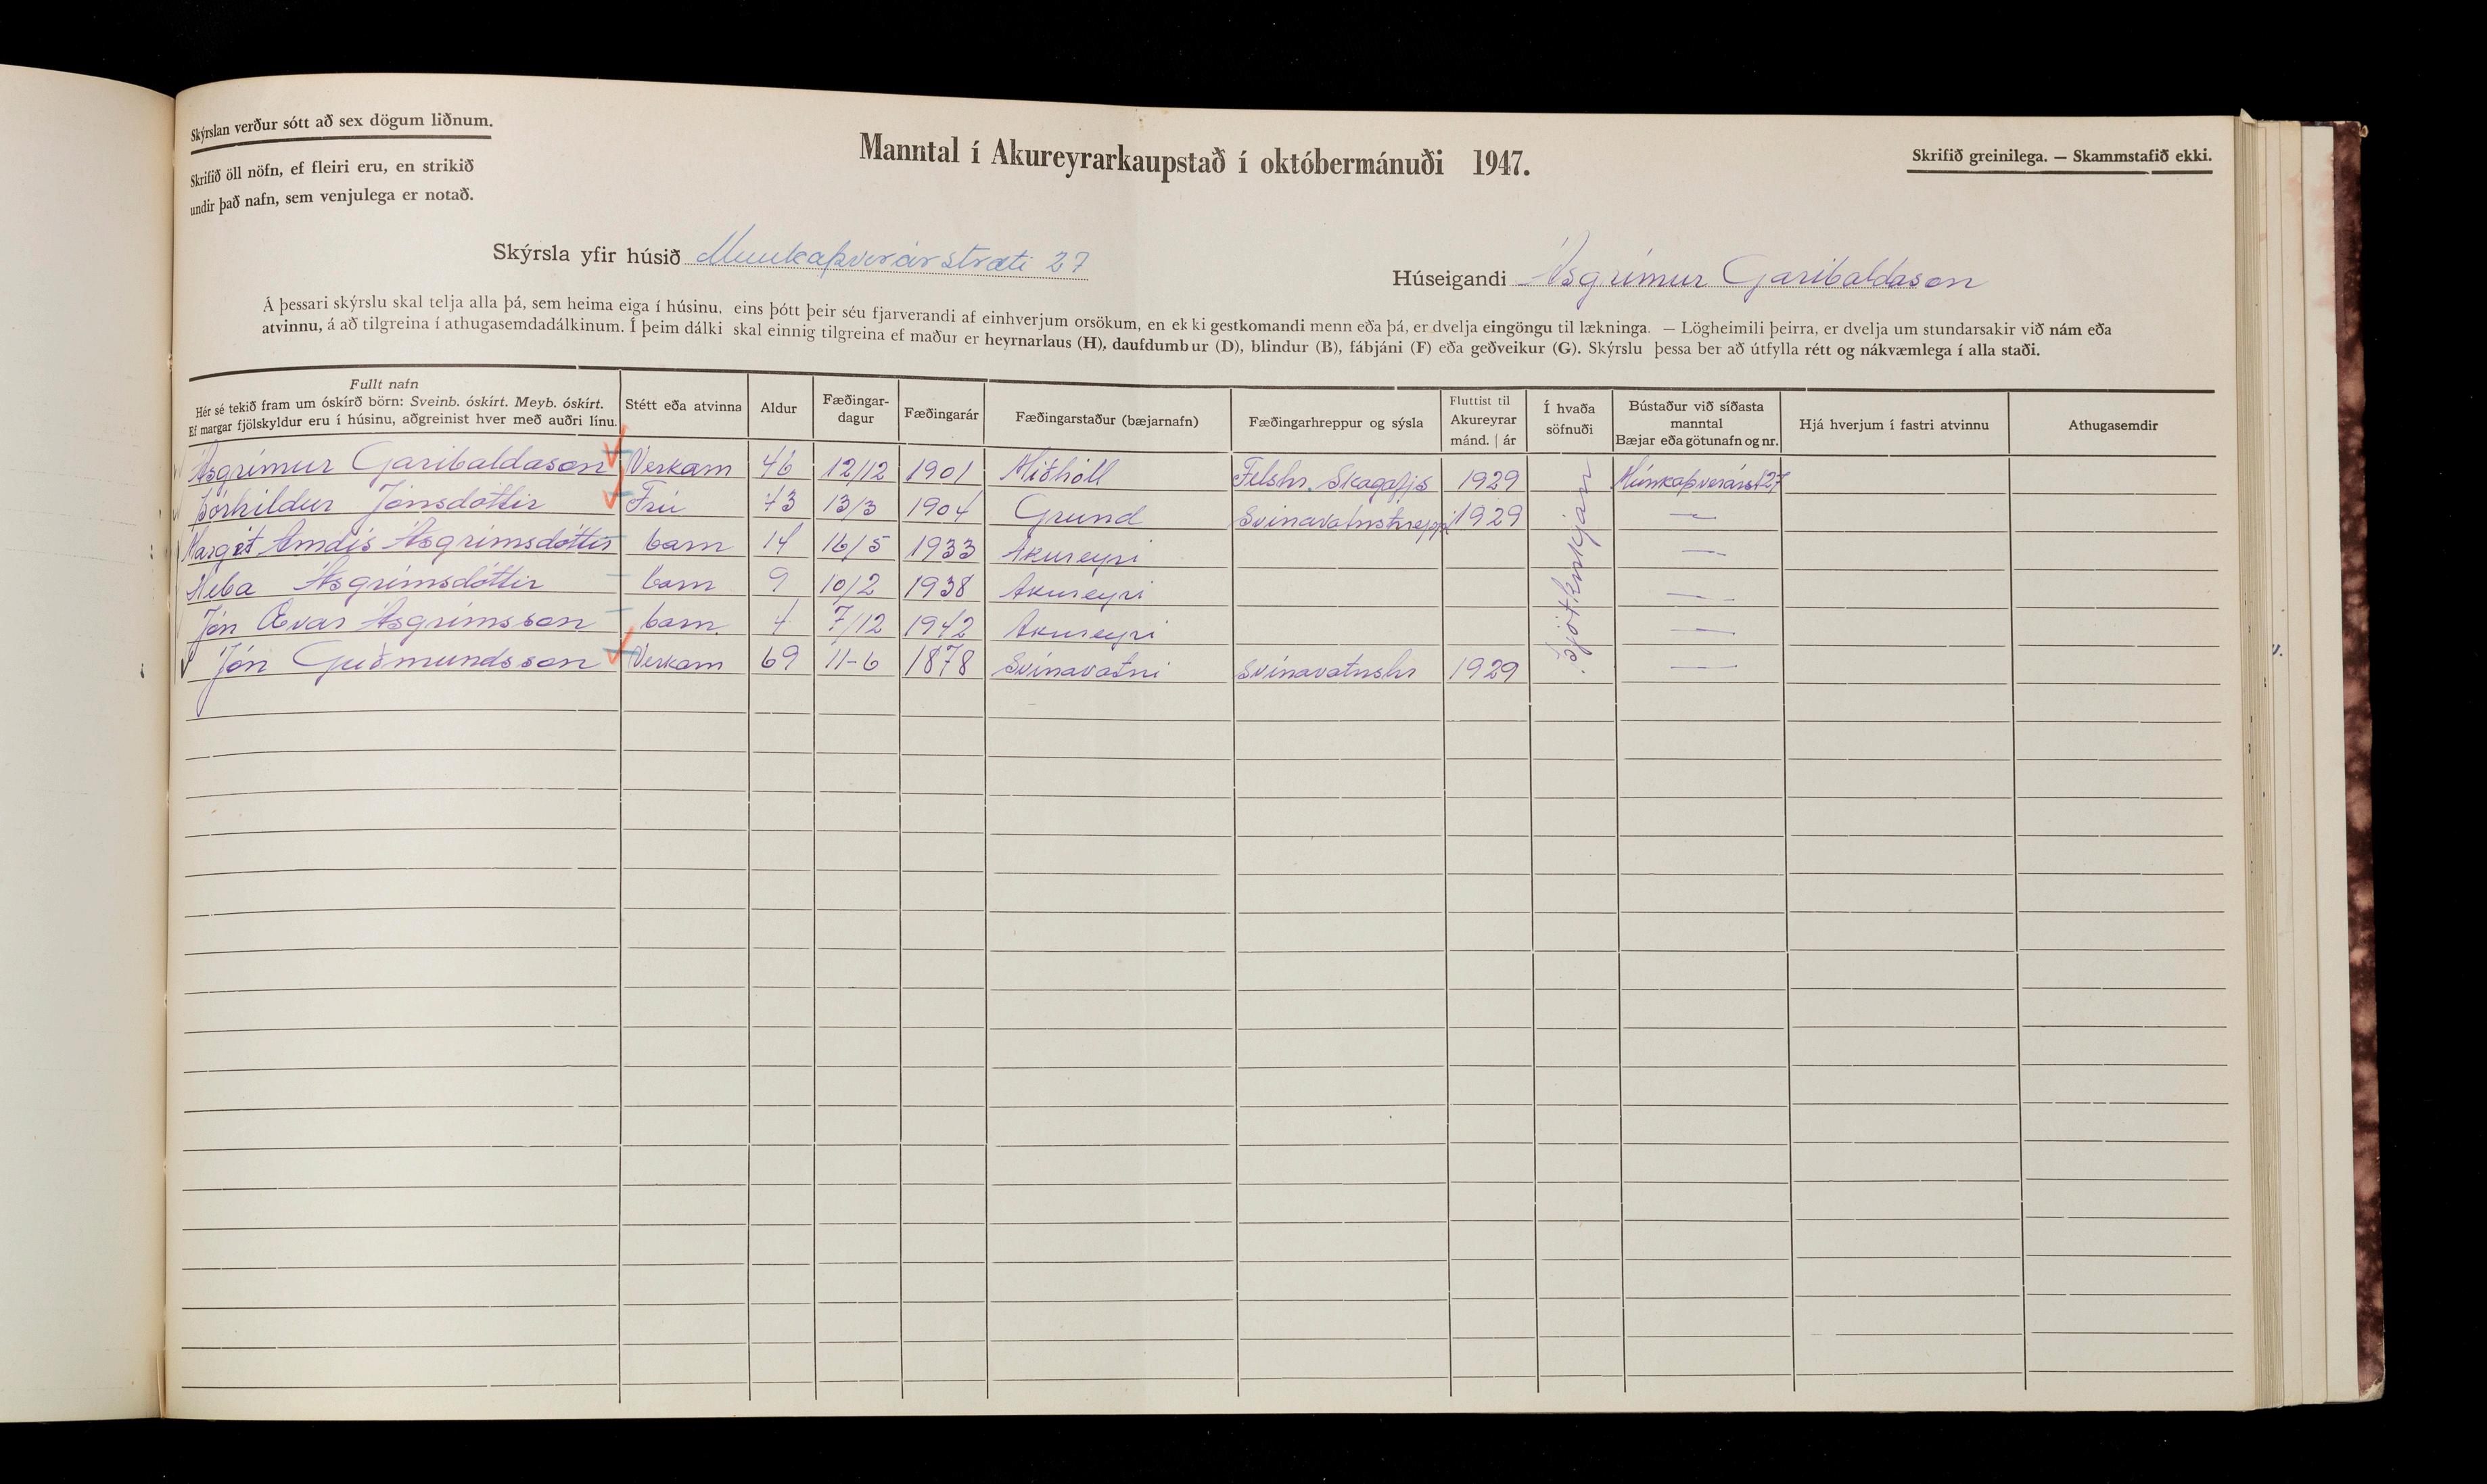 Skýrslan verður sótt að sex dögum liðnum.
Skrifið öll nöfn, ef fleiri eru, en strikið
undir það nafn, sem venjulega er notað.
Manntal í Akureyrarkaupstað í októbermánuði 1947.
Skrifið greinilega. — Skammstafið ekki.
Skýrsla yfir húsið Munkaþverárstræti 27
Húseigandi Ásgrímur Garibaldason
Á þessari skýrslu skal telja alla þá, sem heima eiga í húsinu, eins þótt þeir séu fjarverandi af einhverjum orsökum, en ekki gestkomandi menn eða þá, er dvelja eingöngu til lækninga. — Lögheimili þeirra, er dvelja um stundarsakir við nám eða
atvinnu, á að tilgreina í athugasemdadálkinum. Í þeim dálki skal einnig tilgreina ef maður er heyrnarlaus (H), daufdumbur (D), blindur (B), fábjáni (F) eða geðveikur (G). Skýrslu þessa ber að útfylla rétt og nákvæmlega í alla staði.
Fullt nafn
Hér sé tekið fram um óskírð börn: Sveinb. óskírt. Meyb. óskírt.
Ef margar fjölskyldur eru í húsinu, aðgreinist hver með auðri línu.
Stétt eða atvinna
Aldur
Fæðingar-
dagur
Fæðingarár
Fæðingarstaður (bæjarnafn)
Fæðingarhreppur og sýsla
Fluttist til
Akureyrar
mánd. | ár
Í hvaða
söfnuði
Bústaður við síðasta
manntal
Bæjar eða götunafn og nr.
Hjá hverjum í fastri atvinnu
Athugasemdir
Ásgrímur Garibaldason Verkam 46 12/12 1901 Miðhóll Felshr. Skagafjs 1929 Múnkaþverárst 27
Þórhildur Jónsdóttir Frú 43 13/3 1904 Grund Svínavatnshrepp 1929 —
Margét Arndís Ásgrímsdóttir barn 14 16/5 1933 Akureyri —
Heba Ásgrímsdóttir barn 9 10/2 1938 Akureyri —
Jón Ævar Ásgrímsson barn. 4 7/12 1942 Akureyri —
Jón Guðmundsson Verkam 69 11-6 1878 Svínavatni Svínavatnshr 1929 —